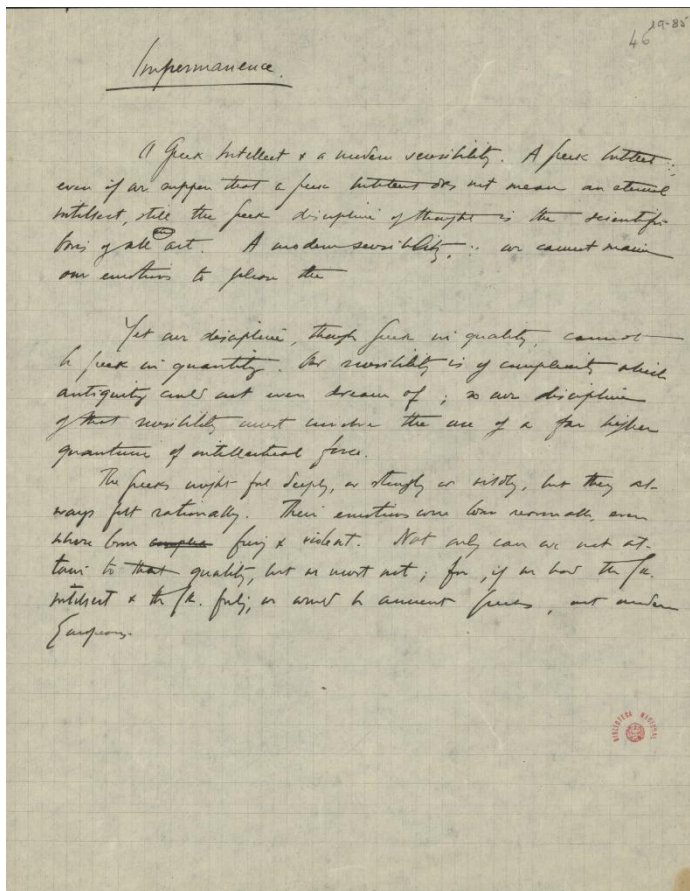 19-85
46
Impermanence.
A Greek intellect & a modern sensibility. A Greek intellect :
even if we suppose that a Greek intellect does not mean an eternal
intellect, still the Greek discipline of thought is the scientific
basis of all art. A modern sensibility, ∵ we cannot
our emotions to please the
Yet our discipline, though Greek in quality, cannot
be Greek in quantity. Our sensibility is of complexity which
antiquity could not even dream of ; so our discipline
of that sensibility must involve the use of a far higher
quantum of intellectual force.
The Greeks might feel deeply, or strongly or wildly, but they al-
ways felt rationally. Their emotions were born reasonable, even
where born & violent. Not only can we not at-
tain to that quality, but we must not ; for, if we had the Gk.
intellect & the Gk. we would be ancient Greeks, not modern
Europeans.
BIBLIOTECA NACIONAL